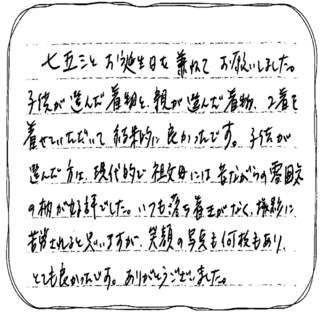 七五三とお誕生日を兼ねてお願いしました。
子供が選んだ着物と、親が選んだ着物、2着を
着せていただいて結果的に良かったです。子供が
選んだ方は、現代的で祖父母には昔ながらの雰囲気
の柄が好評でした。いつも落ち着きがなく、撮影に
苦労されると思いますが、笑顔の写真も何枚もあり、
とても良かったです。ありがとうございました。